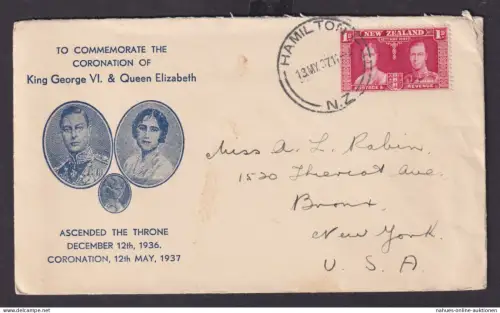 TO COMMEMORATE THE
CORONATION OF
King George VI. & Queen Elizabeth
ASCENDED THE THRONE
DECEMBER 12th, 1936.
CORONATION, 12th MAY, 1937
HAMILTON
13 MY 37
N.Z.
NEW ZEALAND
1D 1D
POSTAGE &
REVENUE
Miss A. L. Rabin,
1520 Theriot Ave.
Bronx,
New York.
U. S. A
nahues-online-auktionen @ delcampe.net